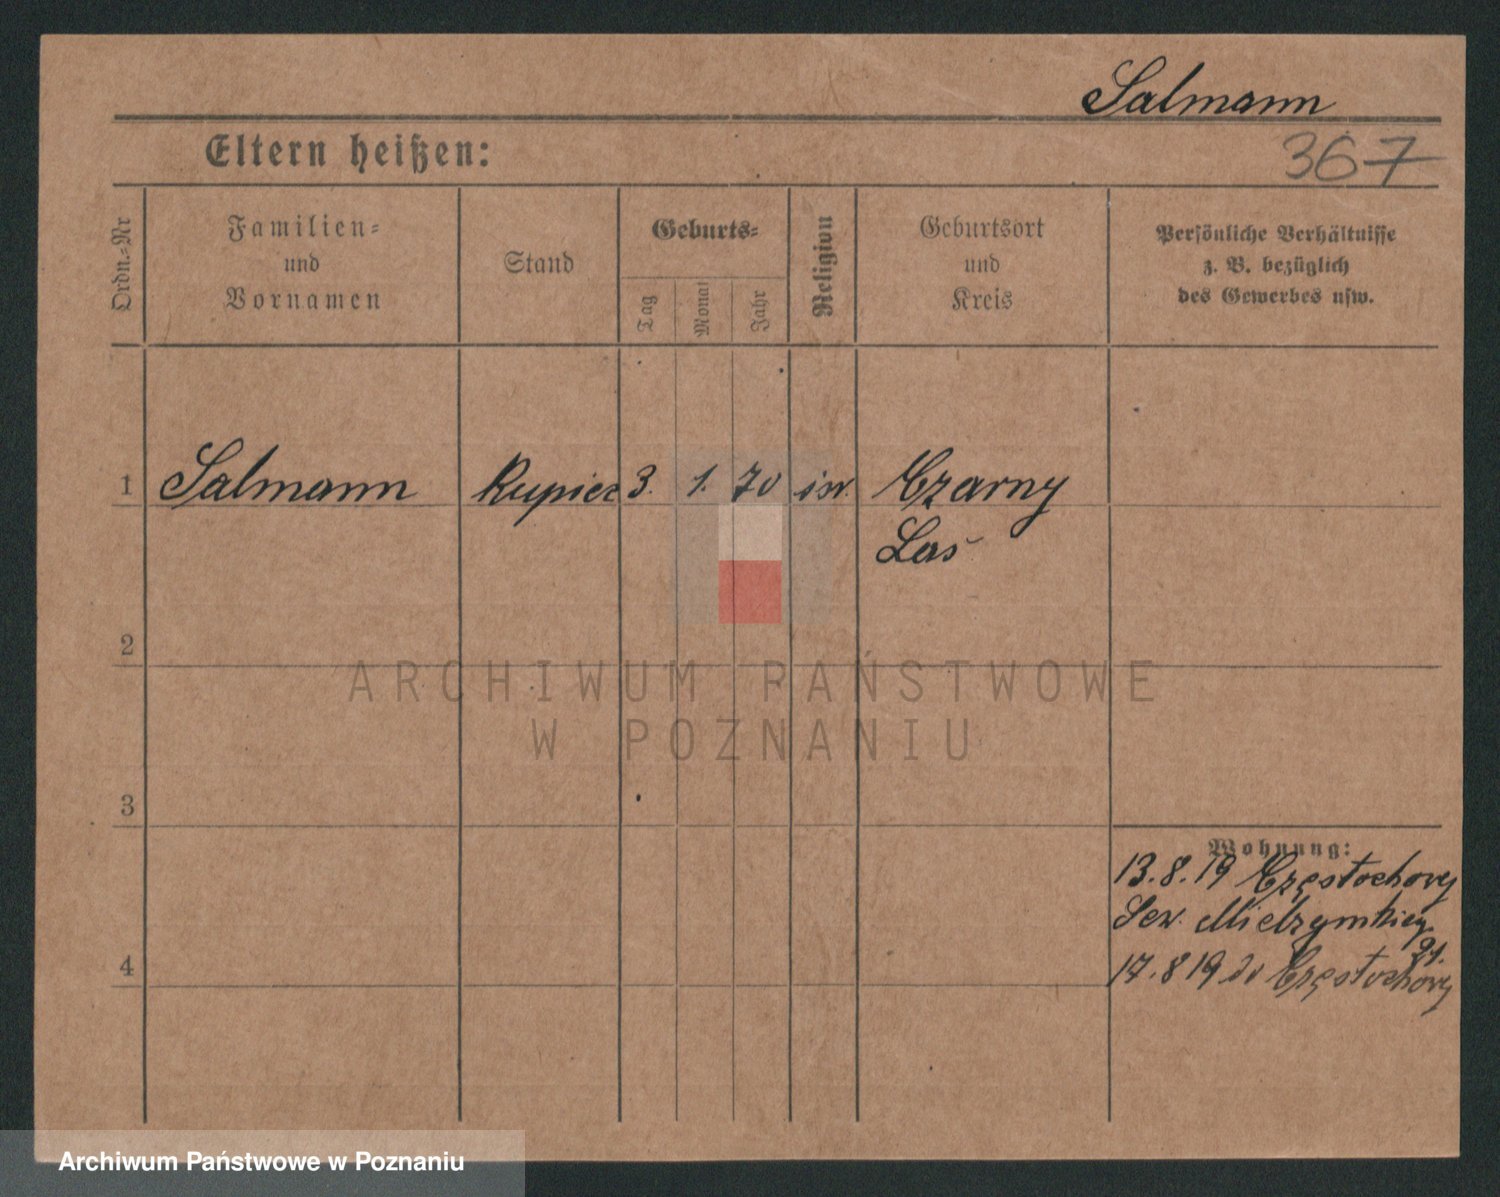 Salmann
367
Eltern heißen:
Ordn.-Nr
Familien-
und
Vornamen
Stand
Geburts-
Tag
Monat
Jahr
Religion
Geburtsort
und
Kreis
Persönliche Verhältnisse
z. B. bezüglich
des Gewerbes usw.
1 Salmann Kupiec 3. 1. 70 izr. Czarny
Las
2
ARCHIWUM PAŃSTWOWE
W POZNANIU
3
Wohnung:
13.8.19 Częstochowy
Sew.
4
17.8 19 do Częstochowy
Archiwum Państwowe w Poznaniu